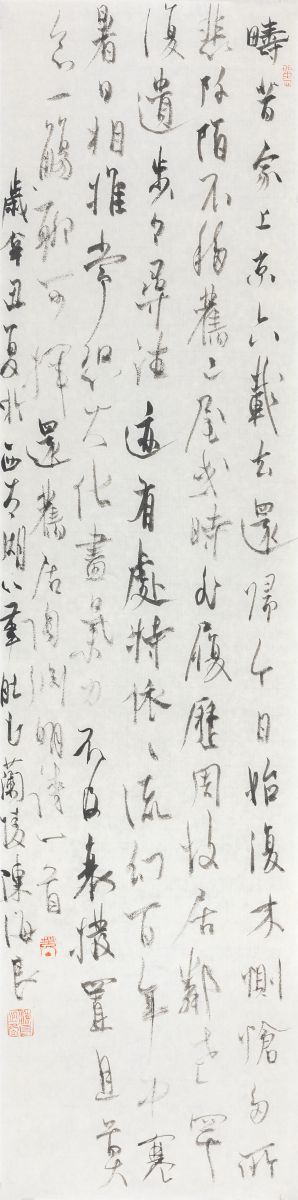 疇昔家上京六載去還歸今日始復來惻愴多所
悲阡陌不移舊邑屋或時非履歷周故居鄰老罕
復遺步步尋往迹有處特依依流幻百年中寒
暑日相推常恐大化盡氣力不及衰撥置且莫
念一觴聊可揮 還舊居陶淵明詩一首
歲辛丑夏於西太湖 蘭陵陳海良